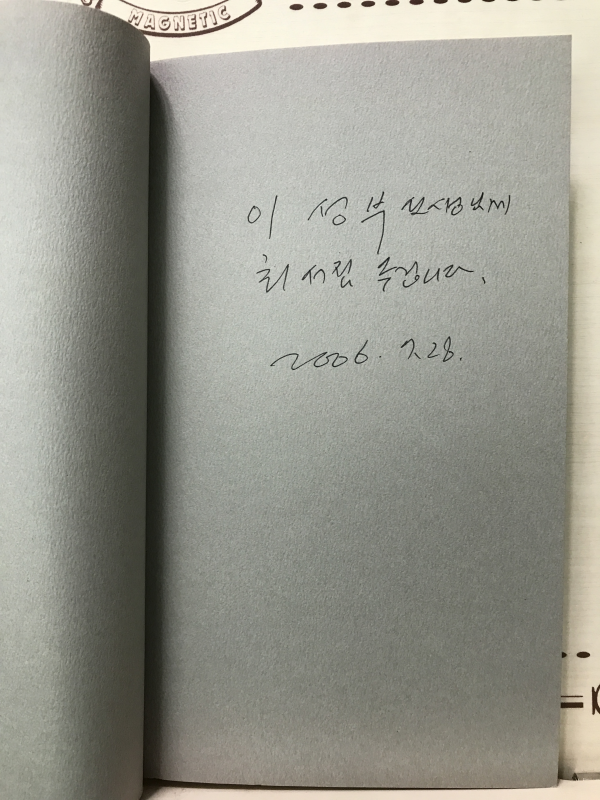 MAGNETIC
이 성부 선생님께
최 서림 드립니다.
2006. 7.28.